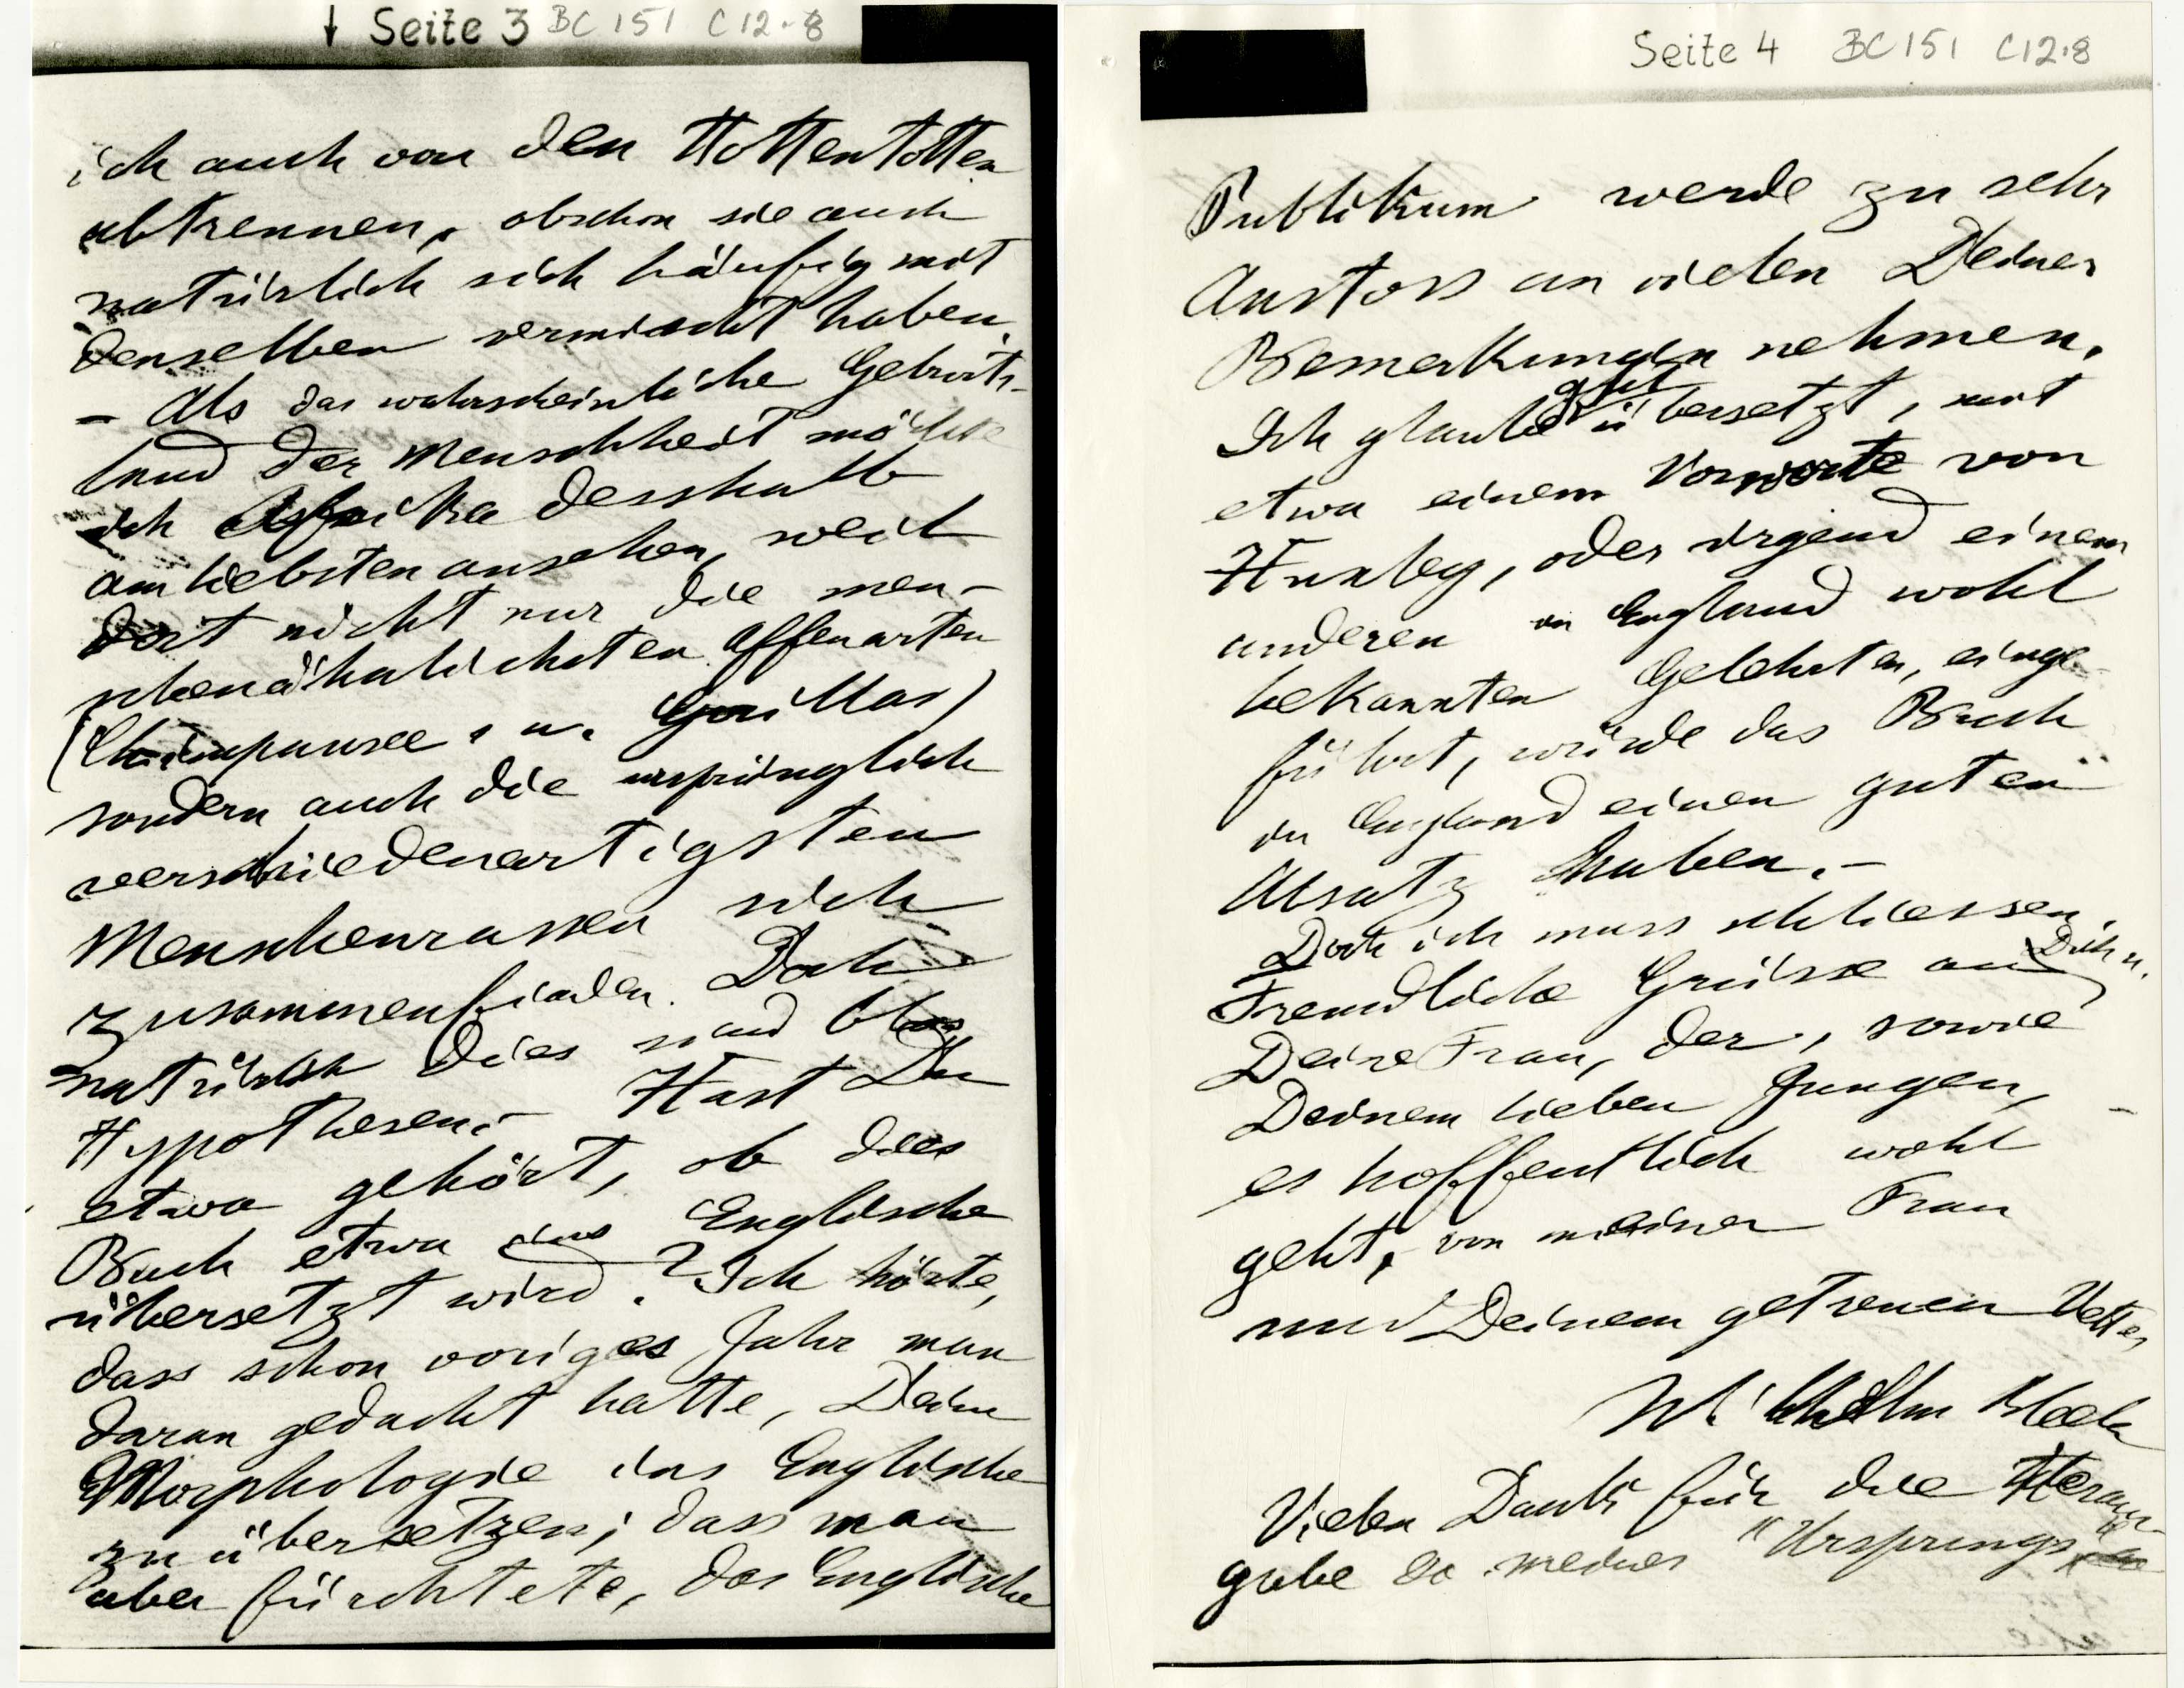 ↓ Seite 3 BC 151 C12.8
ich auch von den Hottentotten
abtrennen, obschon sie auch
natürlich sich häufig mit
denselben vermischt haben.
– Als das wahrscheinliche Geburts-
land der Menschheit möchte
ich Afrika desshalb
am liebsten ansehen, weil
dort nicht nur die men-
schenähnlichsten Affenarten
(Chimpansee u. Gorillas)
sondern auch die ursprünglich
verschiedenartigsten
Menschenrassen sich
zusammenfinden. Doch
natürlich dies sind blos
Hypothesen. – Hast Du
etwa gehört, ob dies
Buch etwa ins Englische
übersetzt wird? Ich hörte,
dass schon voriges Jahr man
daran gedacht hatte, Deine
Morphologie ins Englische
zu übersetzen; dass man
aber fürchtete, das Englische
Seite 4 BC 151 C12.8
Publikum werde zu sehr
Anstoss an vielen Deiner
Bemerkungen nehmen.
Ich glaube gut übersetzt, mit
etwa einem Vorworte von
Huxley, oder irgend einem
anderen in England wohl
bekannten Gelehrten, einge-
führt, würde das Buch
in England einen guten
Absatz haben. –
Doch ich muss schliessen.
Freundliche Grüsse an Dich u.
Deine Frau, der, sowie
Deinem lieben Jungen, –
es hoffentlich wohl
geht, von meiner Frau
und Deinem getreuen Vetter
Wilhelm Bleek
Vielen Dank für die Heraus-
gabe meines "Ursprungs"